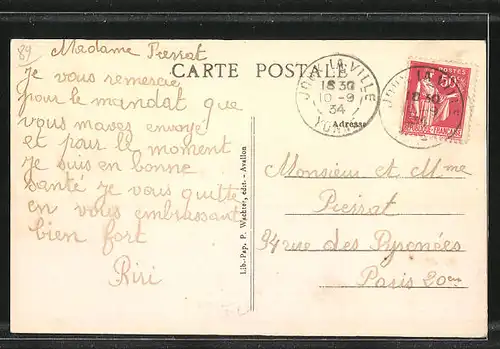 89
Madame Pressat
CARTE POSTALE
Je vous remercie
pour le mandat que
vous mavez envoyé
et pour le moment
je suis en bonne
santé je vous quitte
en vous embrassant
bien fort
Riri
Lib.-Pap. P. Wachter, édit. - Avallon
JOUX-LA-VILLE
18 30
10 - 9
34
YONNE
Adresse
POSTES
1F50
Monsieur et Mme
Pressat
94 rue des Pyrénées
Paris 20em